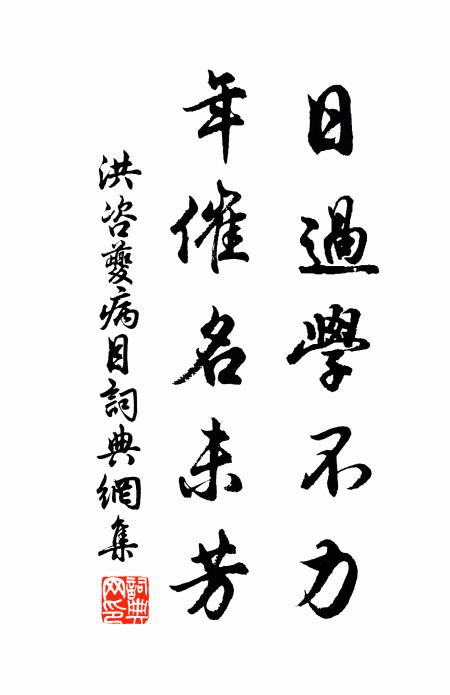 日過學不力
年催名未芳
洪咨夔病目詞典網集
詞典網印